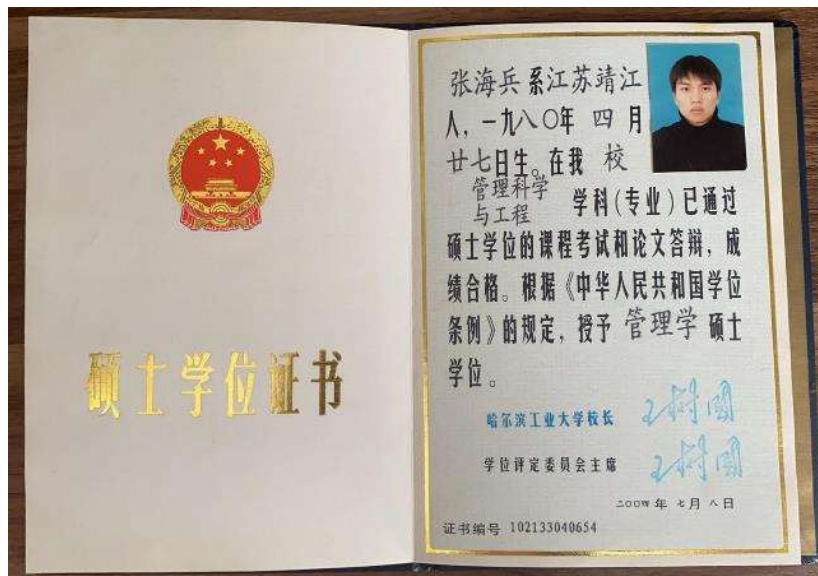 硕士学位证书
张海兵系江苏靖江
人，一九八〇年 四 月
廿七日生。在我 校
管理科学
与工程 学科(专业)已通过
硕士学位的课程考试和论文答辩，成
绩合格。根据《中华人民共和国学位
条例》的规定，授予 管理学 硕士
学位。
哈尔滨工业大学校长 王树国
学位评定委员会主席 王树国
二〇〇四年 七月 八日
证书编号 102133040654